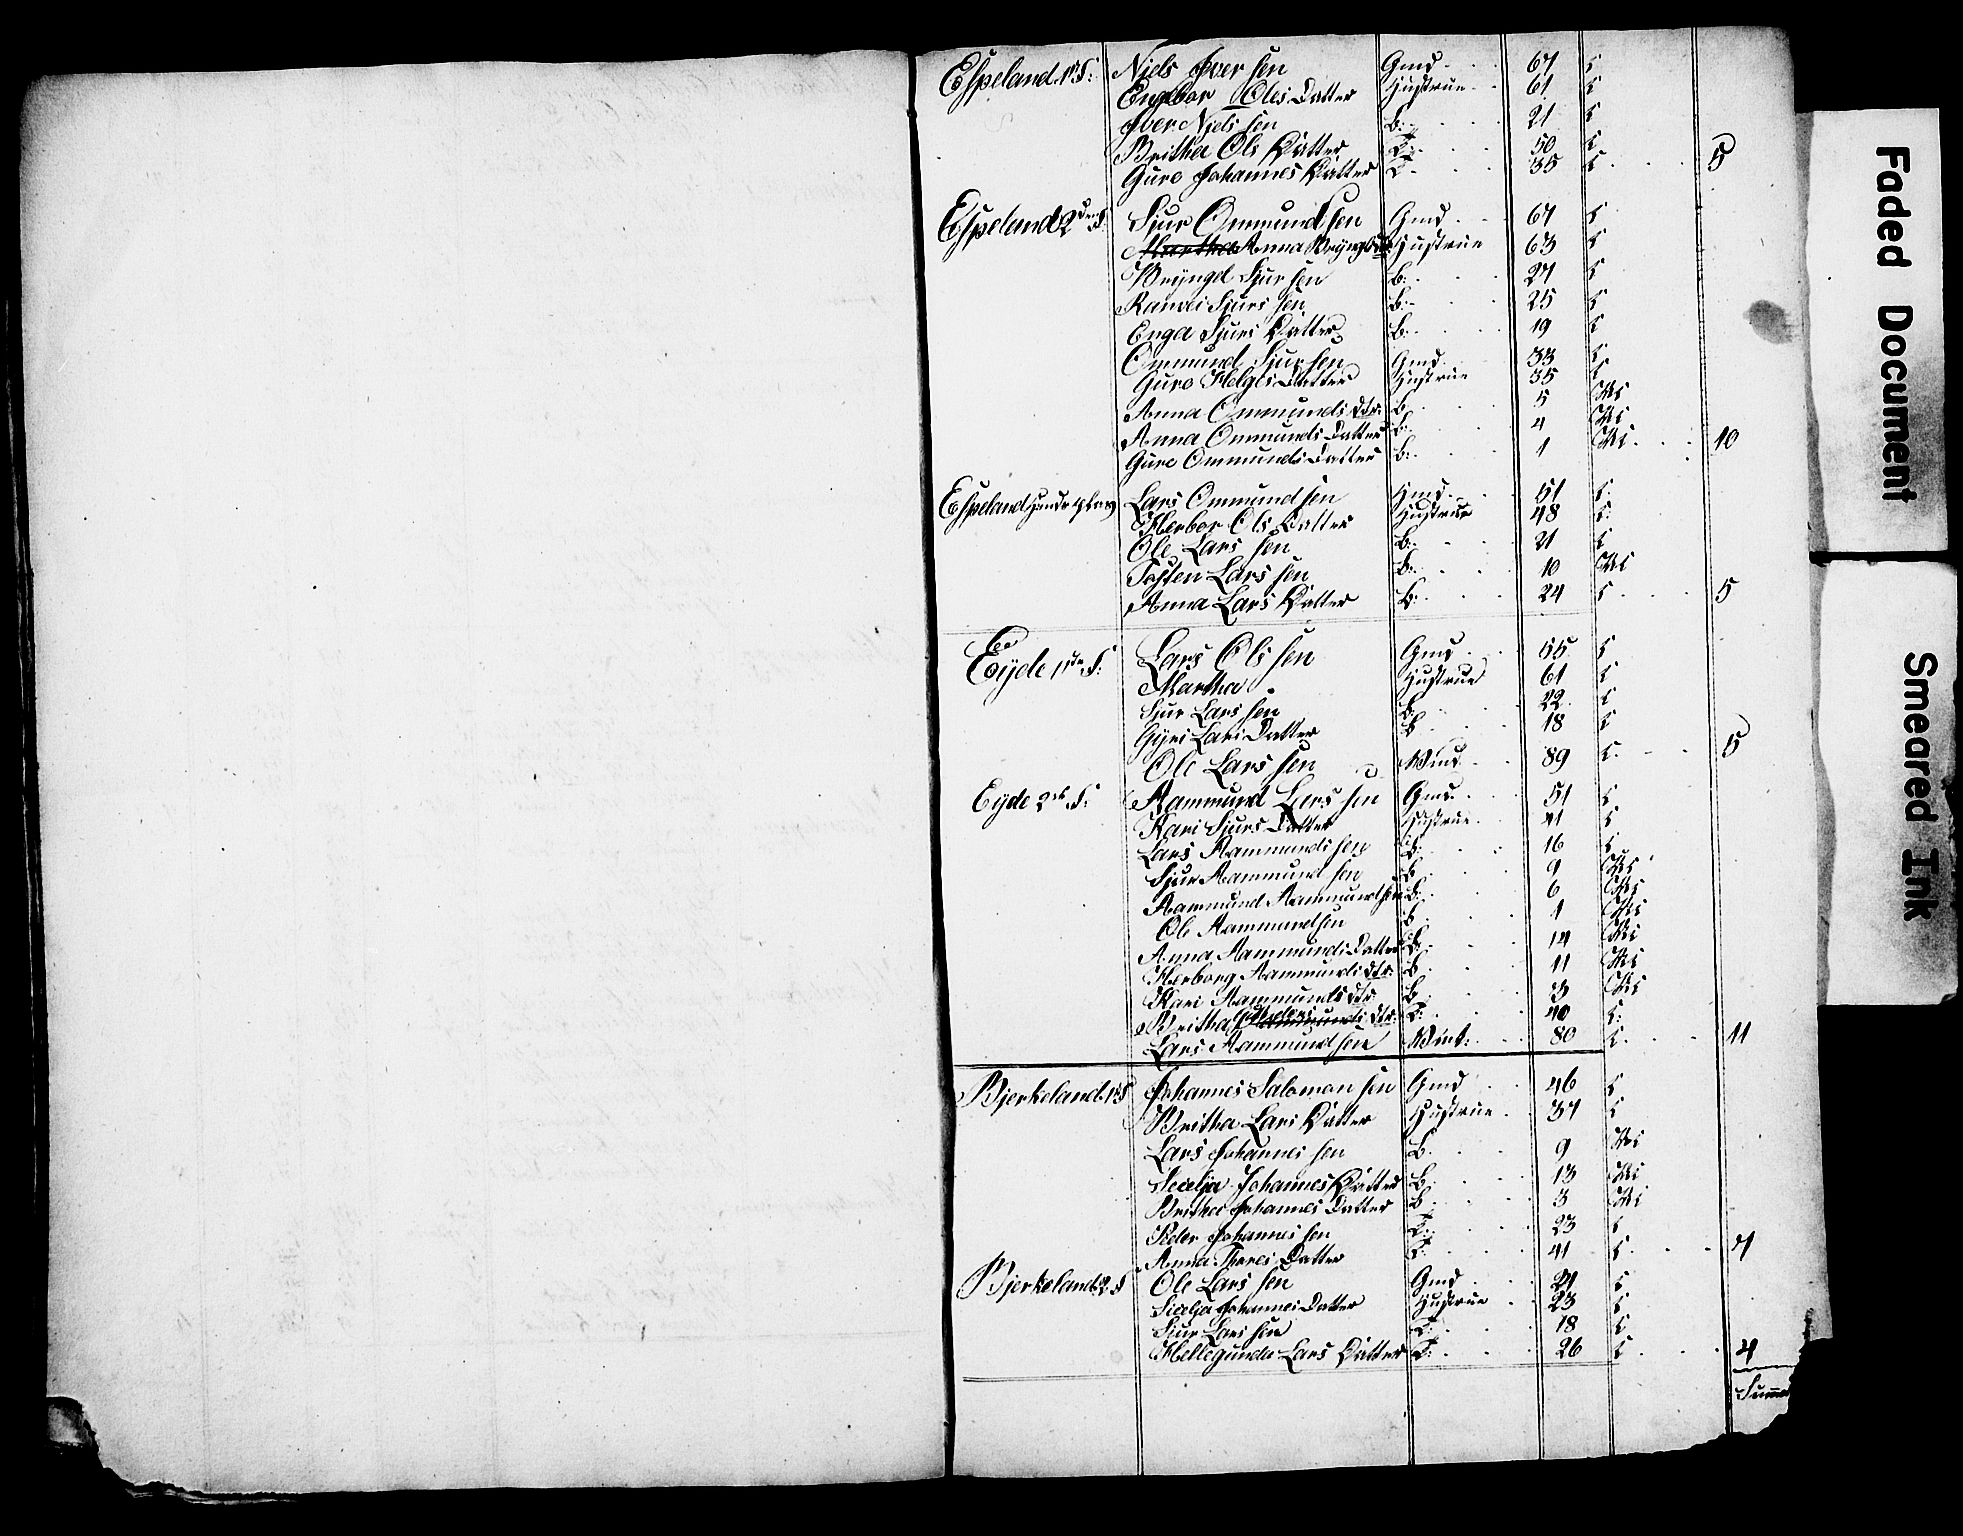 Espeland 1ste S: Niels Iversen Gmd 67 C
Engebor Oles Datter Hustrue 61 C
Iver Niels sen B: 21 C
Britha Ols Datter T: 50 C
Guro Johannes Datter T 35 C 5
Espeland 2den S: Sjur Ommundsen Gmd 67 C
Martha Anna Hustrue 63 C
Bryngel Sjursen B: 27 C
Sjurs sen B: 25 C
Enga Sjurs Datter B: 19 C
Ommund Sjursen Gmd 33 C
Guro Helges Datter Hustrue 35 C
Anna Ommunds Dtr. B 5
Anna Ommunds Datter B: 4
Guro Ommunds Datter B: 1 10
Espeland Lars Ommundsen 51 C
Herbor Ols Datter Hustrue 48 C
Ole Lars sen B: 21 C
Tosten Lars sen B: 10
Anna Lars Datter B: 24 C 5
Eyde 1ste S: Lars Ols sen Gmd 55 C
Martha Hustrue 61 C
Sjur Lars sen B: 22 C
Gyri Lars Datter B 18 C
Ole Lars sen 89 C 5
Eyde 2de S: Aammund Lars sen Gmd 51 C
Kari Sjurs Datter Hustrue 41 C
Lars Aammunds sen B: 16 C
Sjur Aammund sen B 9
Aammund Aammundsen B: 6
Ole Aammundsen B 1
Anna Aammunds Datter B: 14
Herborg Aammunds Dtr. B 11
Kari Aammunds Dtr B 3
Britha Dtr. T: 40 C:
Lars Aammundsen 80 C 11
Bjerkeland 1ste S Johannes Salomonsen Gmd 46 C
Britha Lars Datter Hustrue 37 C
Lars Johannes sen B 9
Johannes Datter B: 13
Britha Johannes Datter B 3
Peder Johannes sen T: 23 C
Anna Datter T: 41 C 7
Bjerkeland 2 S Ole Lars sen Gmd C
Johannes Datter Hustrue 23 C
Sjur Lars sen T: 18 C
Hellegunda Lars Datter T: 26 C 4
Summa
Faded Document
Smeared Ink